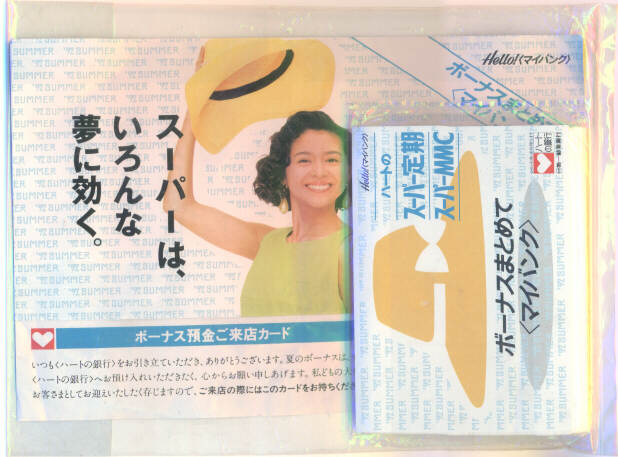 Hello!〈マイバンク〉
ボーナスまとめて
〈マイバンク
スーパーは、
いろんな
夢に効く。
'92 SUMMER
ボーナス預金ご来店カード
いつも〈ハートの銀行〉をお引き立ていただき、ありがとうございます。夏のボーナスは、
〈ハートの銀行〉へお預け入れいただきたく、心からお願い申しあげます。私どもの大
お客さまとしてお迎えいたしたく存じますので、ご来店の際にはこのカードをお持ちくださ
Hello!〈マイバンク〉
ハートの
スーパー定期
スーパーMMC
ボーナスまとめて
〈マイバンク〉
ハートの銀行